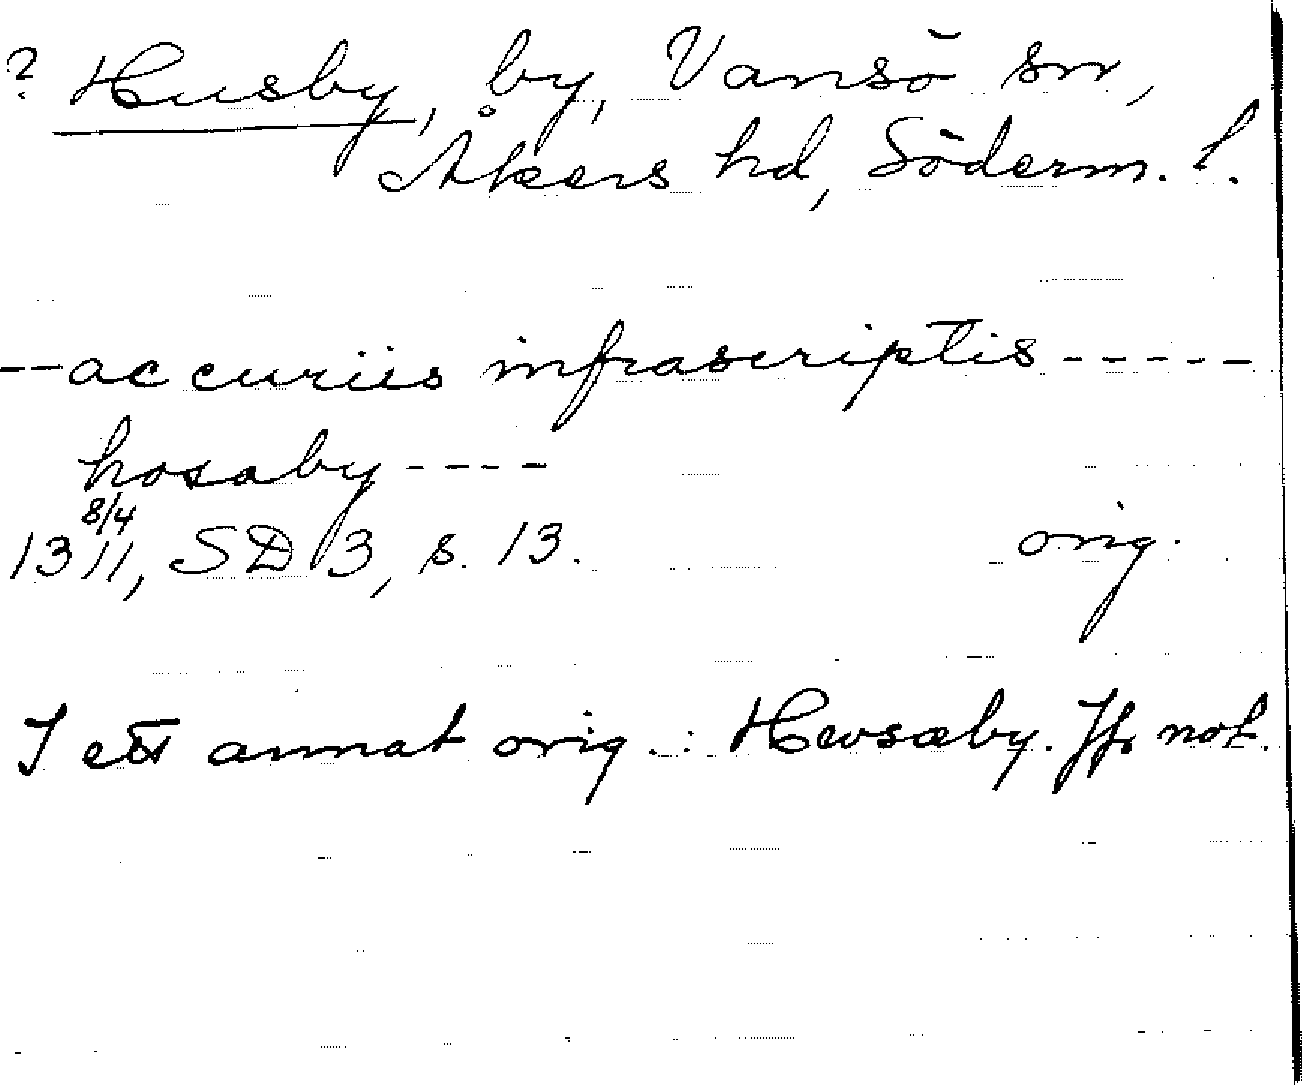 ? Husby, by, Vansö sn,
Åkers hd, Söderm. l.
-- ac curiis infrascriptis -----
hosaby ----
13 8/4 11, SD 3, s. 13. orig.
I ett annat orig.: Hwsæby. Jfr not.